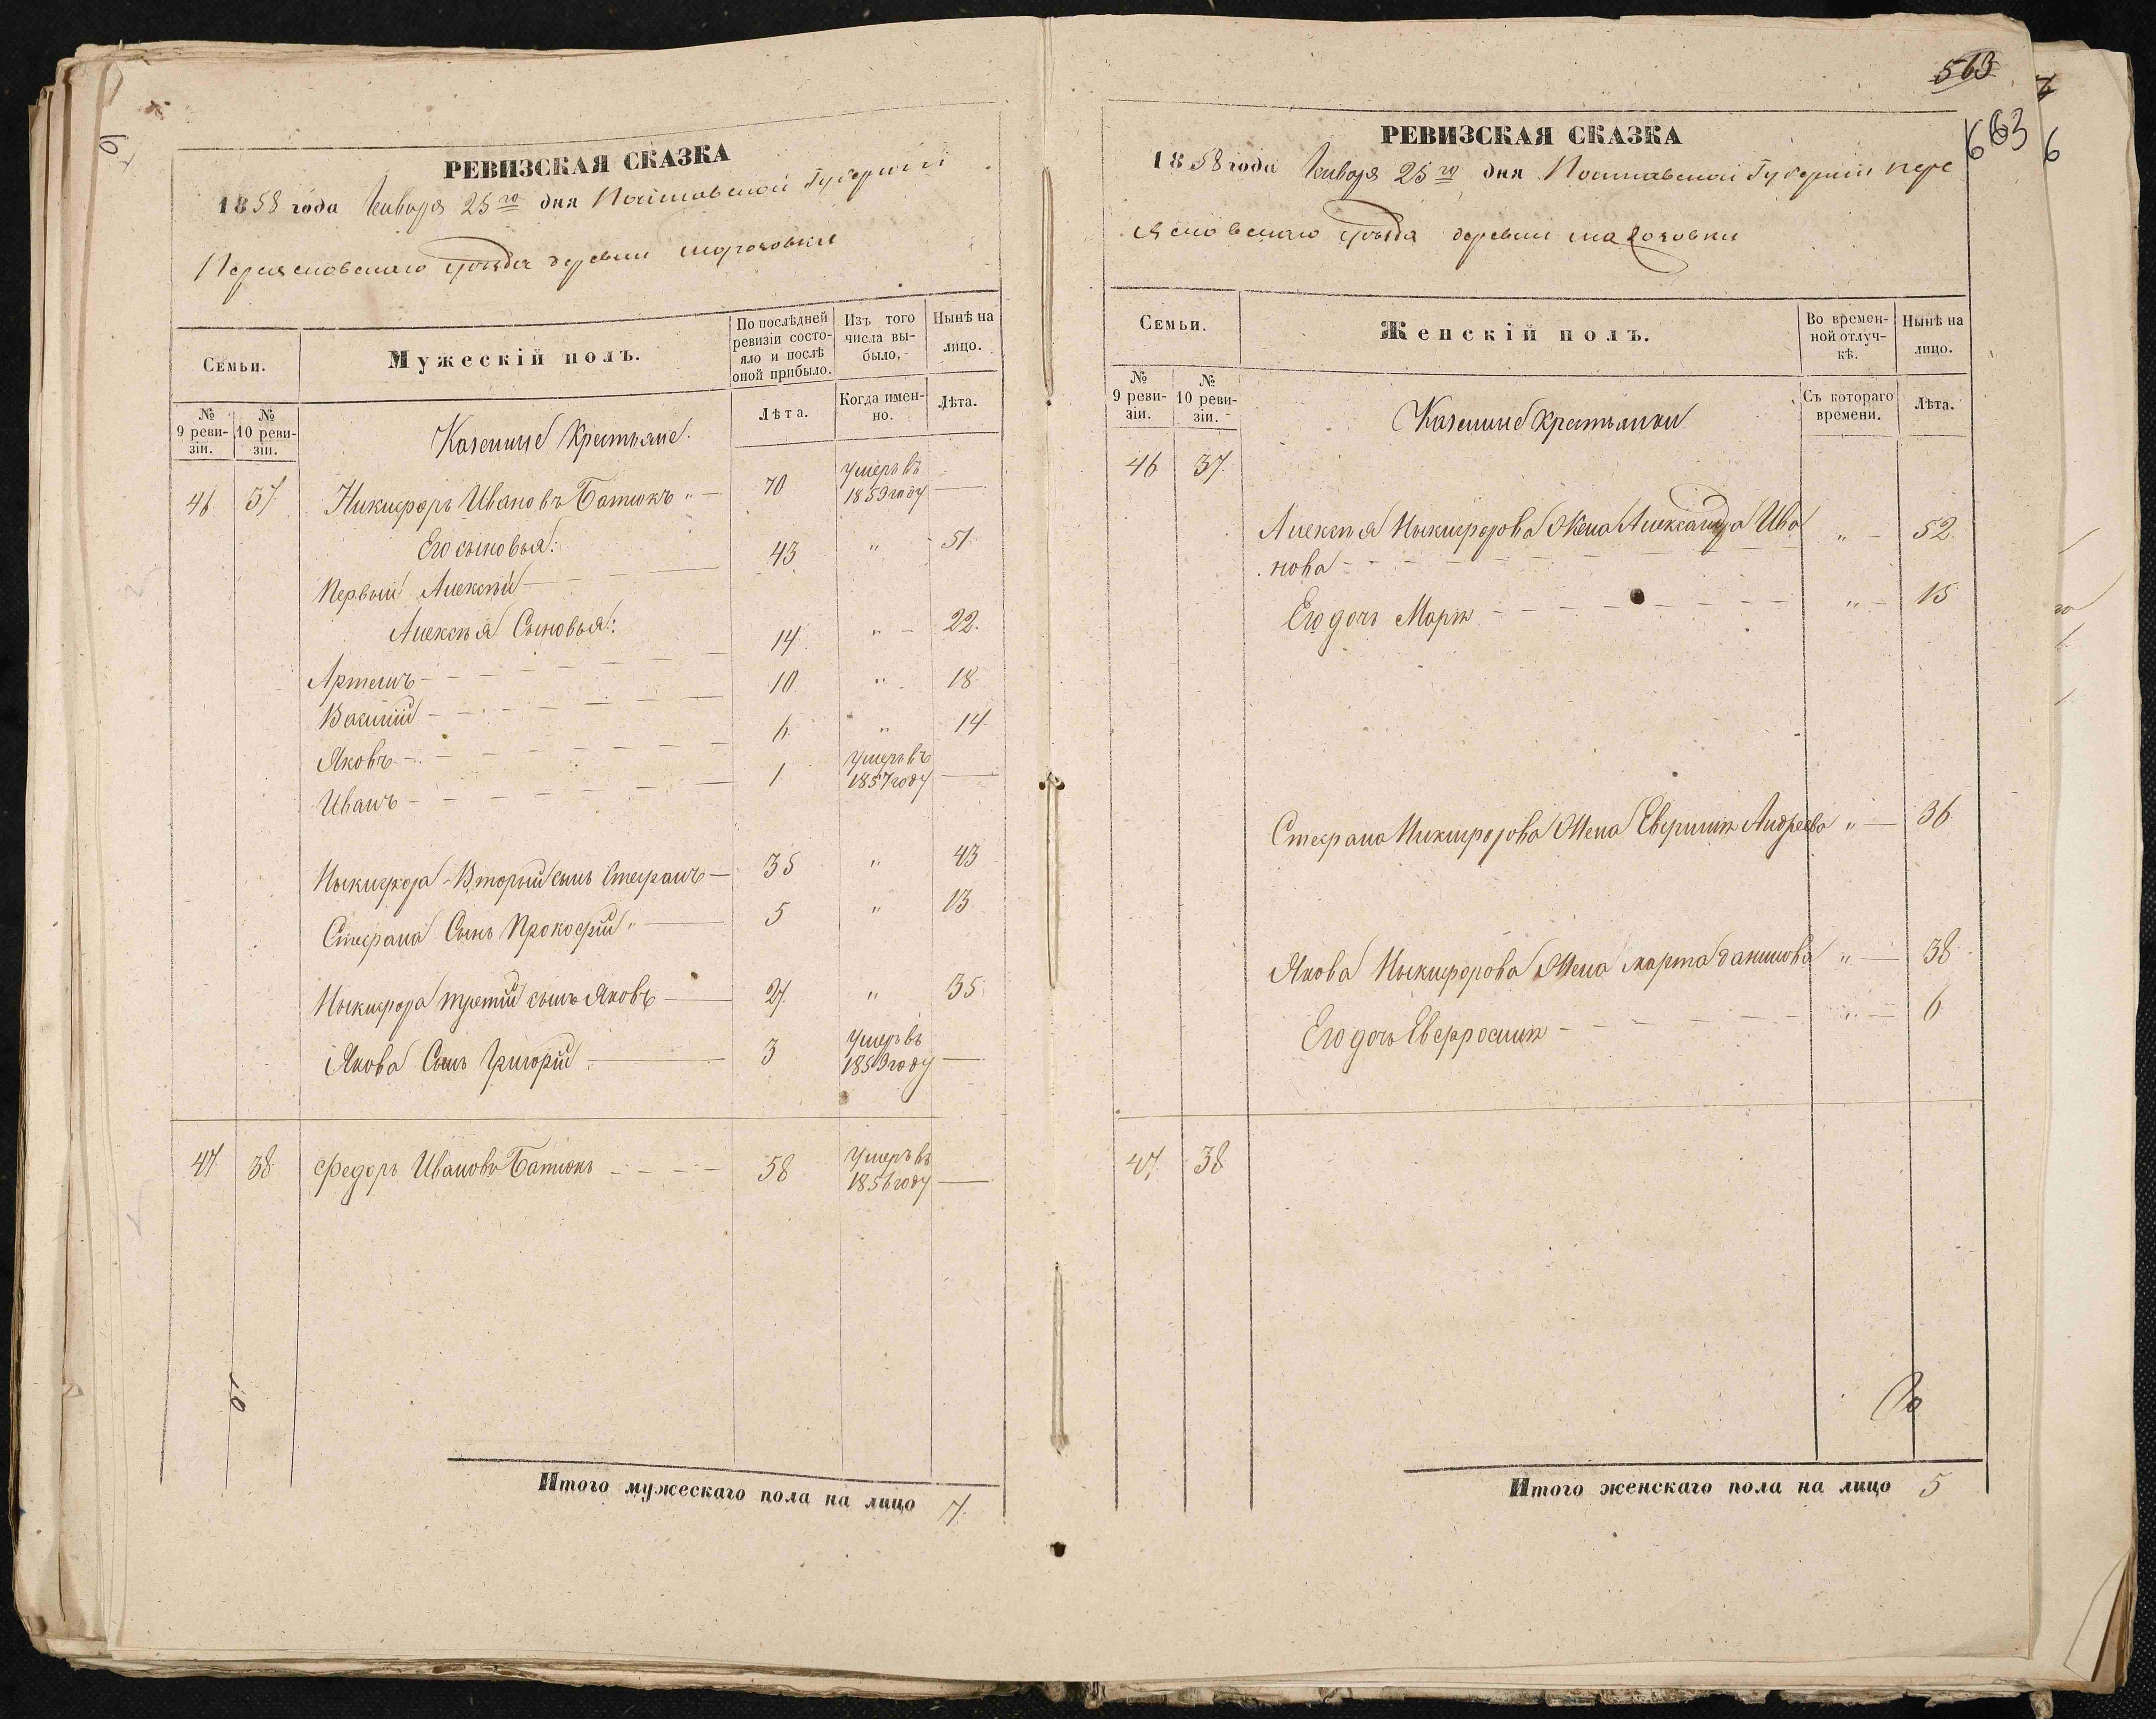 РЕВИЗСКАЯ СКАЗКА
1858 года Января 25го дня Полтавской Губерніи
Переясловскаго уѣзда деревни
Семьи.
Мужескій полъ.
По послѣдней ревизіи состояло и послѣ оной прибыло.
Изъ того числа выбыло.
Нынѣ на лицо.
№ 9 ревизіи.
№ 10 ревизіи.
Казенные Крестьяне.
Лѣта.
Когда именно.
Лѣта.
46 37 Никифоръ Ивановъ Батюкъ " — 70 умеръ въ 1850 году —
Его сыновья:
Первый Алексѣй — 43 " 51
Алексѣя Сыновья:
Артемъ — 14 " — 22.
Василій — 10 " 18
Яковъ — 6 " 14.
Иванъ — 1 умеръ въ 1857 году —
Ныкифора Вторый сынъ Стефанъ — 35 " 43
Стефана Сынъ Прокофій " — 5 " 13
Ныкифора третій сынъ Яковъ — 27 " 35
Якова Сынъ Григорій — 3 умеръ въ 1853 году —
47 38 Федоръ Ивановъ Батюкъ — 58 умеръ въ 1856 году —
Итого мужескаго пола на лицо 7.
513
663
6
РЕВИЗСКАЯ СКАЗКА
1858 года Января 25го дня Полтавской Губерніи пере
ясловскаго уѣзда деревни
Семьи.
Женскій полъ.
Во временной отлучкѣ.
Нынѣ на лицо.
№ 9 ревизіи.
№ 10 ревизіи.
Казенные Крестьянки
Съ котораго времени.
Лѣта.
46 37.
Алексѣя Ныкифорова Жена Александра Ива
нова — " — 52.
Его дочь Марія — " — 15
Стефана Никифорова Жена Евфимія Андреева " — 36.
Якова Ныкифорова Жена марта данилова " — 38
Его дочь Евфросинія — " — 6
47. 38
Итого женскаго пола на лицо 5